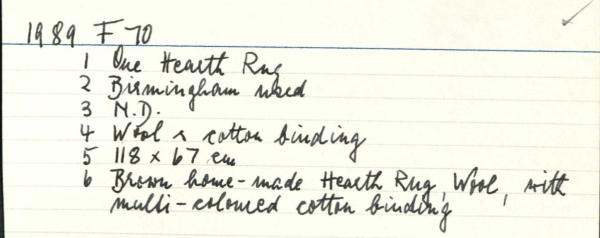 1989 F 70
1 One Hearth Rug
2 Birmingham used
3 N.D.
4 Wool & cotton binding
5 118 x 67 cm
6 Brown home-made Hearth Rug, Wool, with
multi-coloured cotton binding